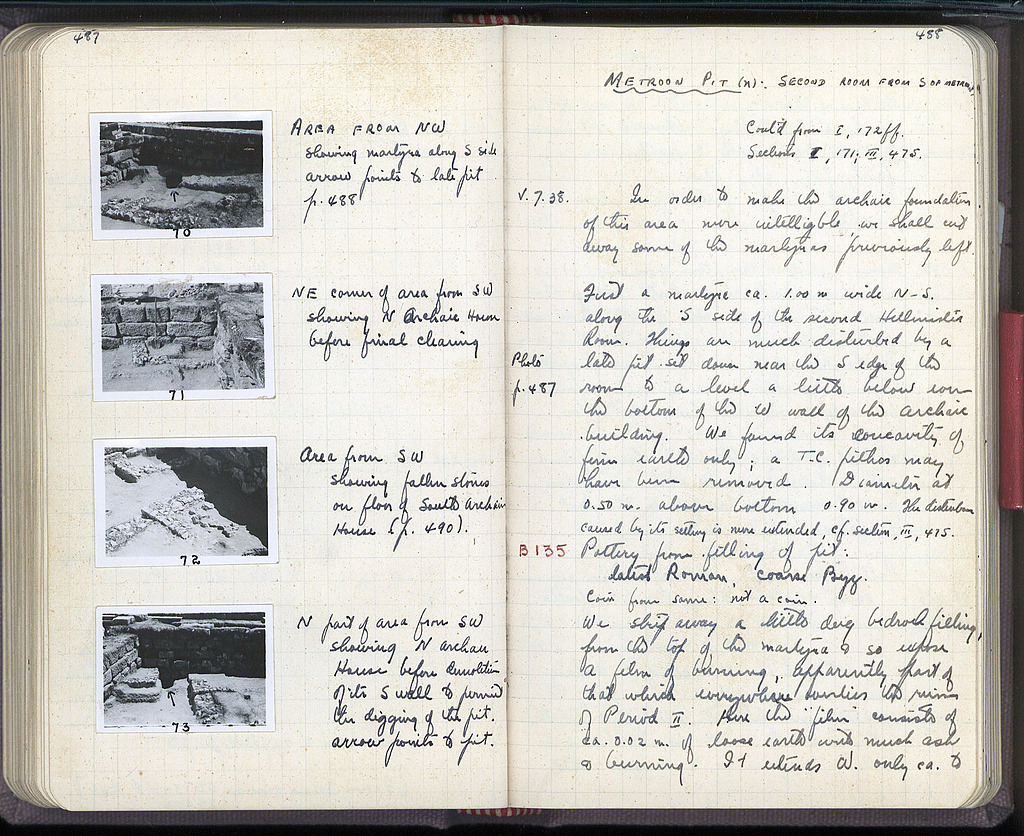 487
AREA FROM NW
showing martyra along S side
arrow points to late pit
p. 488
70
NE corner of area from SW
showing N Archaic House
before final clearing
71
Area from SW
showing fallen stones
on floor of South Archaic
House (p. 490).
72
N part of area from SW
showing N archaic
House before demolition
of its S wall to permit
the digging of the pit.
arrow points to pit.
73
488
METROON PIT (N): SECOND ROOM FROM S OF METROON
Cont'd from I, 172ff.
Sections I, 171; III, 475.
V.7.38. In order to make the archaic foundations
of this area more intelligible we shall cut
away some of the martyras previously left.
First a martyra ca. 1.00 m wide N-S.
along the S side of the second Hellenistic
Room. Things are much disturbed by a
Photo late pit set down near the S edge of the
p. 487 room to a level a little below
the bottom of the W wall of the archaic
building. We found its concavity of
firm earth only; a T.C. pithos may
have been removed. Diameter at
0.50 m. above bottom 0.90 m. The disturbance
caused by its setting is more extended, cf. section, III, 475.
B135 Pottery from filling of pit:
latest Roman, coarse Byz.
Coin from same: not a coin.
We strip away a little deg bedrock filling,
from the top of the martyra & so expose
a film of burning, apparently part of
that which everywhere overlies the ruins
of Period II. Here the "film" consists of
ca. 0.02 m. of loose earth with much ash
& burning. It extends W. only ca. to